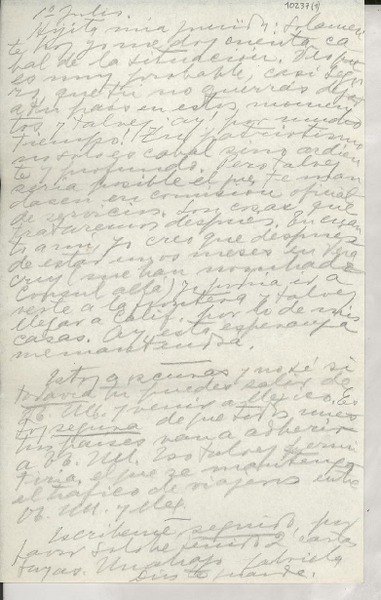 10237(1)
1° Julio.
Hijita mía querida: Solamen-
te hoy yo me doy cuenta ca-
bal de la situación. Veo que
es muy probable, casi segu-
ro, que tú no quieras dejar
a tu país en estos momen-
tos y talvez ¡ay! por mucho
tiempo! Tu patriotismo
no sólo es cabal sino ardien-
te y profundo. Pero talvez
sería posible el que te man-
dasen en comisión oficial
de servicios. Son cosas que
trataremos después. En cuan-
to a mí, yo creo que después
de estar unos meses en Vera
Cruz (me han nombrado
Consul allá) yo podría ir a
verte a la frontera y talvez
llegar a Calif. por lo de mis
casas. Ay, esta esperanza
me mantendrá.
Estoy a oscuras y no sé si
todavía tú puedes salir de
EE. UU. y venir a México. Es-
toy segura de que todos nues-
tros países van a adherir
a EE. UU. Eso talvez permi-
tiera el que se mantenga
el tráfico de viajeros entre
EE. UU. y Mex.
Escríbeme seguido, por
favor. Sólo he tenido 2 cartas
tuyas. Un abrazo Gabriela
Dios te guarde.